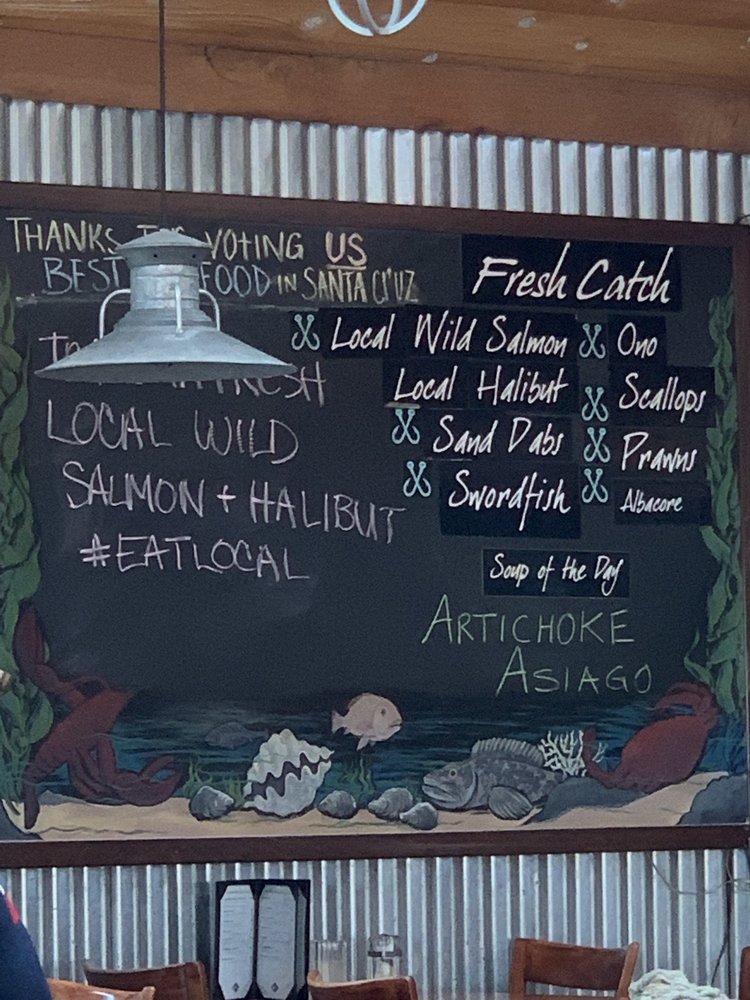 THANKS VOTING US
BEST FOOD IN SANTA CRUZ
FRESH
LOCAL WILD
SALMON + HALIBUT
#EATLOCAL
Fresh Catch
Local Wild Salmon
Local Halibut
Sand Dabs
Swordfish
Ono
Scallops
Prawns
Albacore
Soup of the Day
ARTICHOKE
ASIAGO